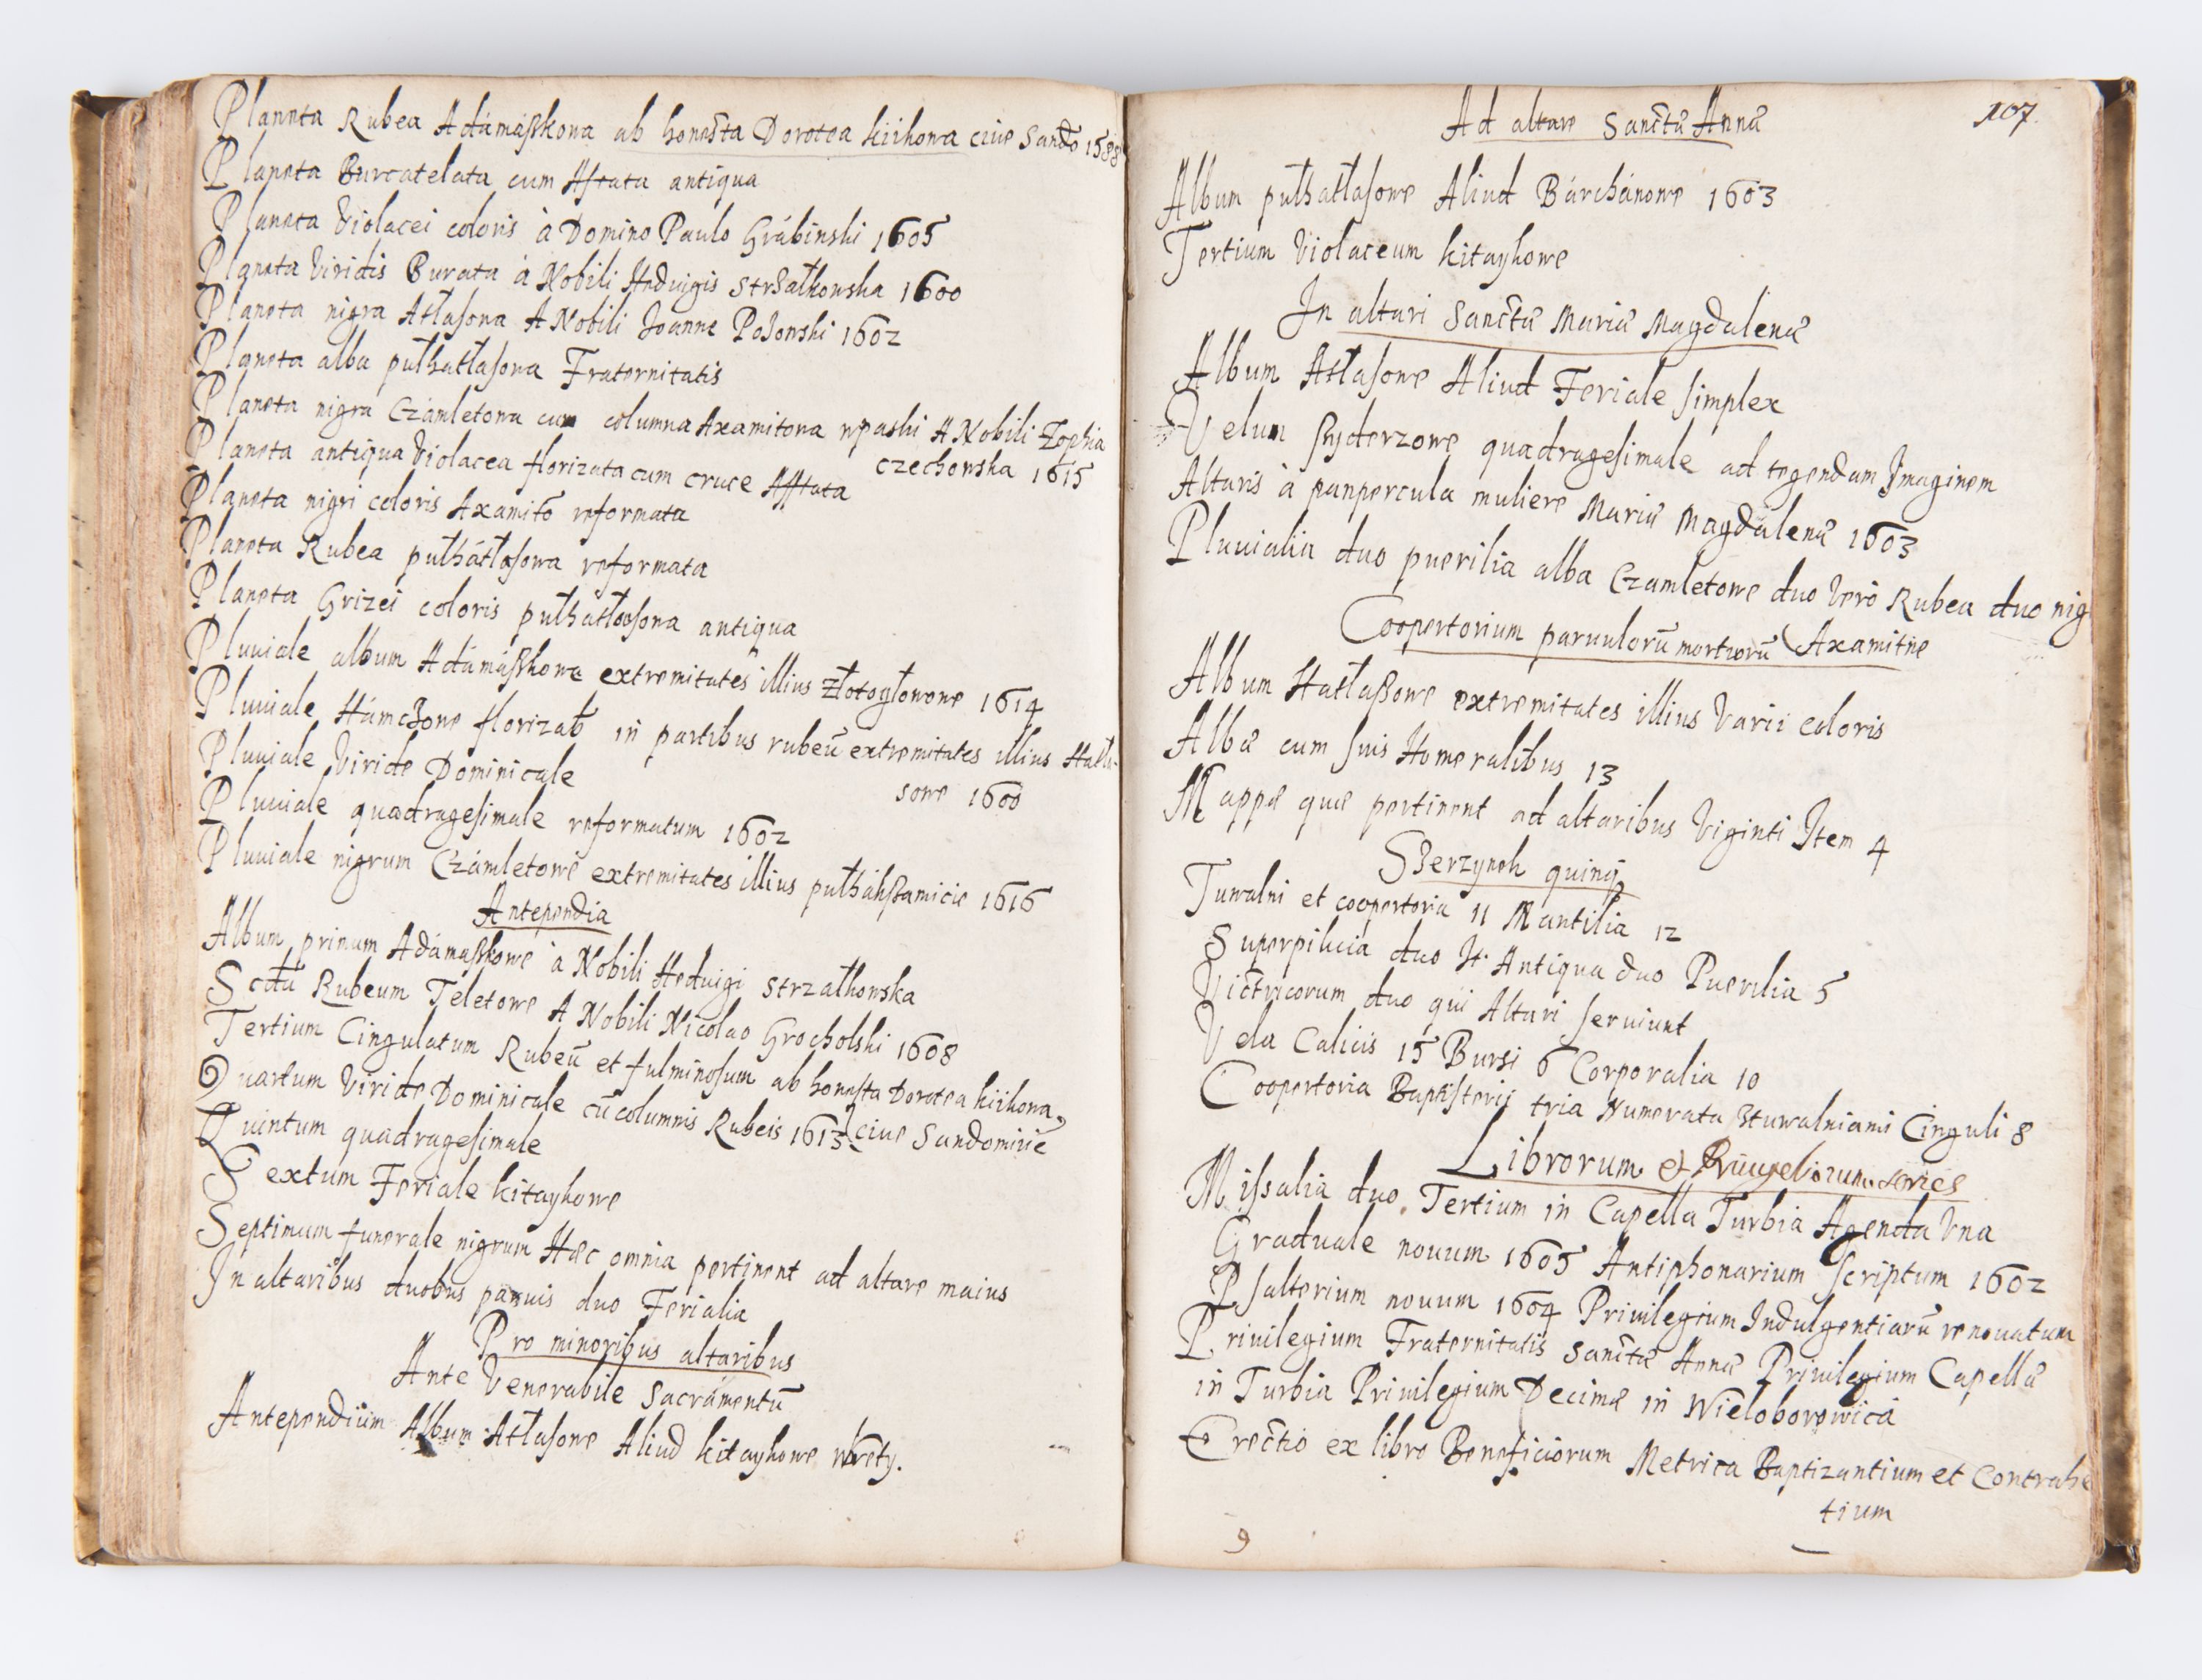 Planeta Rubea Adámáßkowa ab honesta Dorotea kiihowa ciue Sando 1588
Planeta Burcatelata cum Astata antiqua
Planeta Violacei coloris à Domino Paulo Grábinski 1605
Planeta Viridis Burata à Nobili Heduigis Strzałkowska 1600
Planeta nigra Atłasowa A Nobili Joanne Polowski 1602
Planeta alba pułhatłasowa Fraternitatis
Planeta nigra Czámletowa cum columna Axamitowa wpaski A Nobili Zophia
czechowska 1615
Planeta antiqua Violacea florizata cum cruce Asstata
Planeta nigri coloris Axamito reformata
Planeta Rubea pułhátłasowa reformata
Planeta Grizei coloris pułhatłasowa antiqua
Pluuiale album Adámáßkowe extremitates illius złotogłowowe 1614
Pluuiale florizat in partibus rubeū extremitates illius Hatła-
sowe 1600
Pluuiale Viride Dominicale
Pluuiale quadragesimale reformatum 1602
Pluuiale nigrum Czámletowe extremitates illius 1616
Antependia
Album primum Adámaßkowe à Nobili Heduigi Strzałkowska
Scdū Rubeum Teletowe A Nobili Nicolao Grocholski 1608
Tertium Cingulatum Rubeū et fulminosum ab honesta Dorotea kiihowa
Quartum Viride Dominicale cū columnis Rubeis 1613 ciue Sandomirie
Quintum quadragesimale
Sextum Feriale kitayhowe
Septimum funerale nigrum Hæc omnia pertinent ad altare maius
In altaribus duobus paruis duo Ferialia
Pro minoribus altaribus
Ante Venerabile Sacrámentū
Antependium Album Atłasowe Aliud kitayhowe
107
Ad altare Sanctæ Annæ
Album pułhatłasowe Aliud Bárchánowe 1603
Tertium Violaceum kitayhowe
In altari Sanctæ Mariæ Magdalenæ
Album Atłasowe Aliud Feriale simplex
Velum quadragesimale ad tegendam Imaginem
Altaris à panpercula muliere Mariæ Magdalenæ 1603
Pluuialia duo puerilia alba Czamletowe duo Vero Rubea duo nig
Coopertorium paruulorū mortuorū Axamitne
Album Hatłaßowe extremitates illius Varii coloris
Albæ cum suis Humeralibus 13
Mappæ quæ pertinent ad altaribus Viginti Item 4
Szerzynek quinq
Tuwalni et coopertoria 11 Mantilia 12
Superpilicia duo It. Antiqua duo Puerilia 5
Victricorum duo qui Altari seruiunt
Vela Calicis 15 Bursi 6 Corporalia 10
Coopertoria Baptisterij tria Numerata Ztuwalniami Cinguli 8
Librorum et Priuilegiorum series
Missalia duo Tertium in Capella Turbia Agenda Vna
Graduale nouum 1605 Antiphonarium scriptum 1602
Psalterium nouum 1604 Priuilegium Indulgentiarū renouatum
Priuilegium Fraternitatis Sanctæ Annæ Priuilegium Capellæ
in Turbia Priuilegium Decimæ in Wieloborowica
Erectio ex libro Beneficiorum Metrica Baptizantium et Contrahe
tium
9